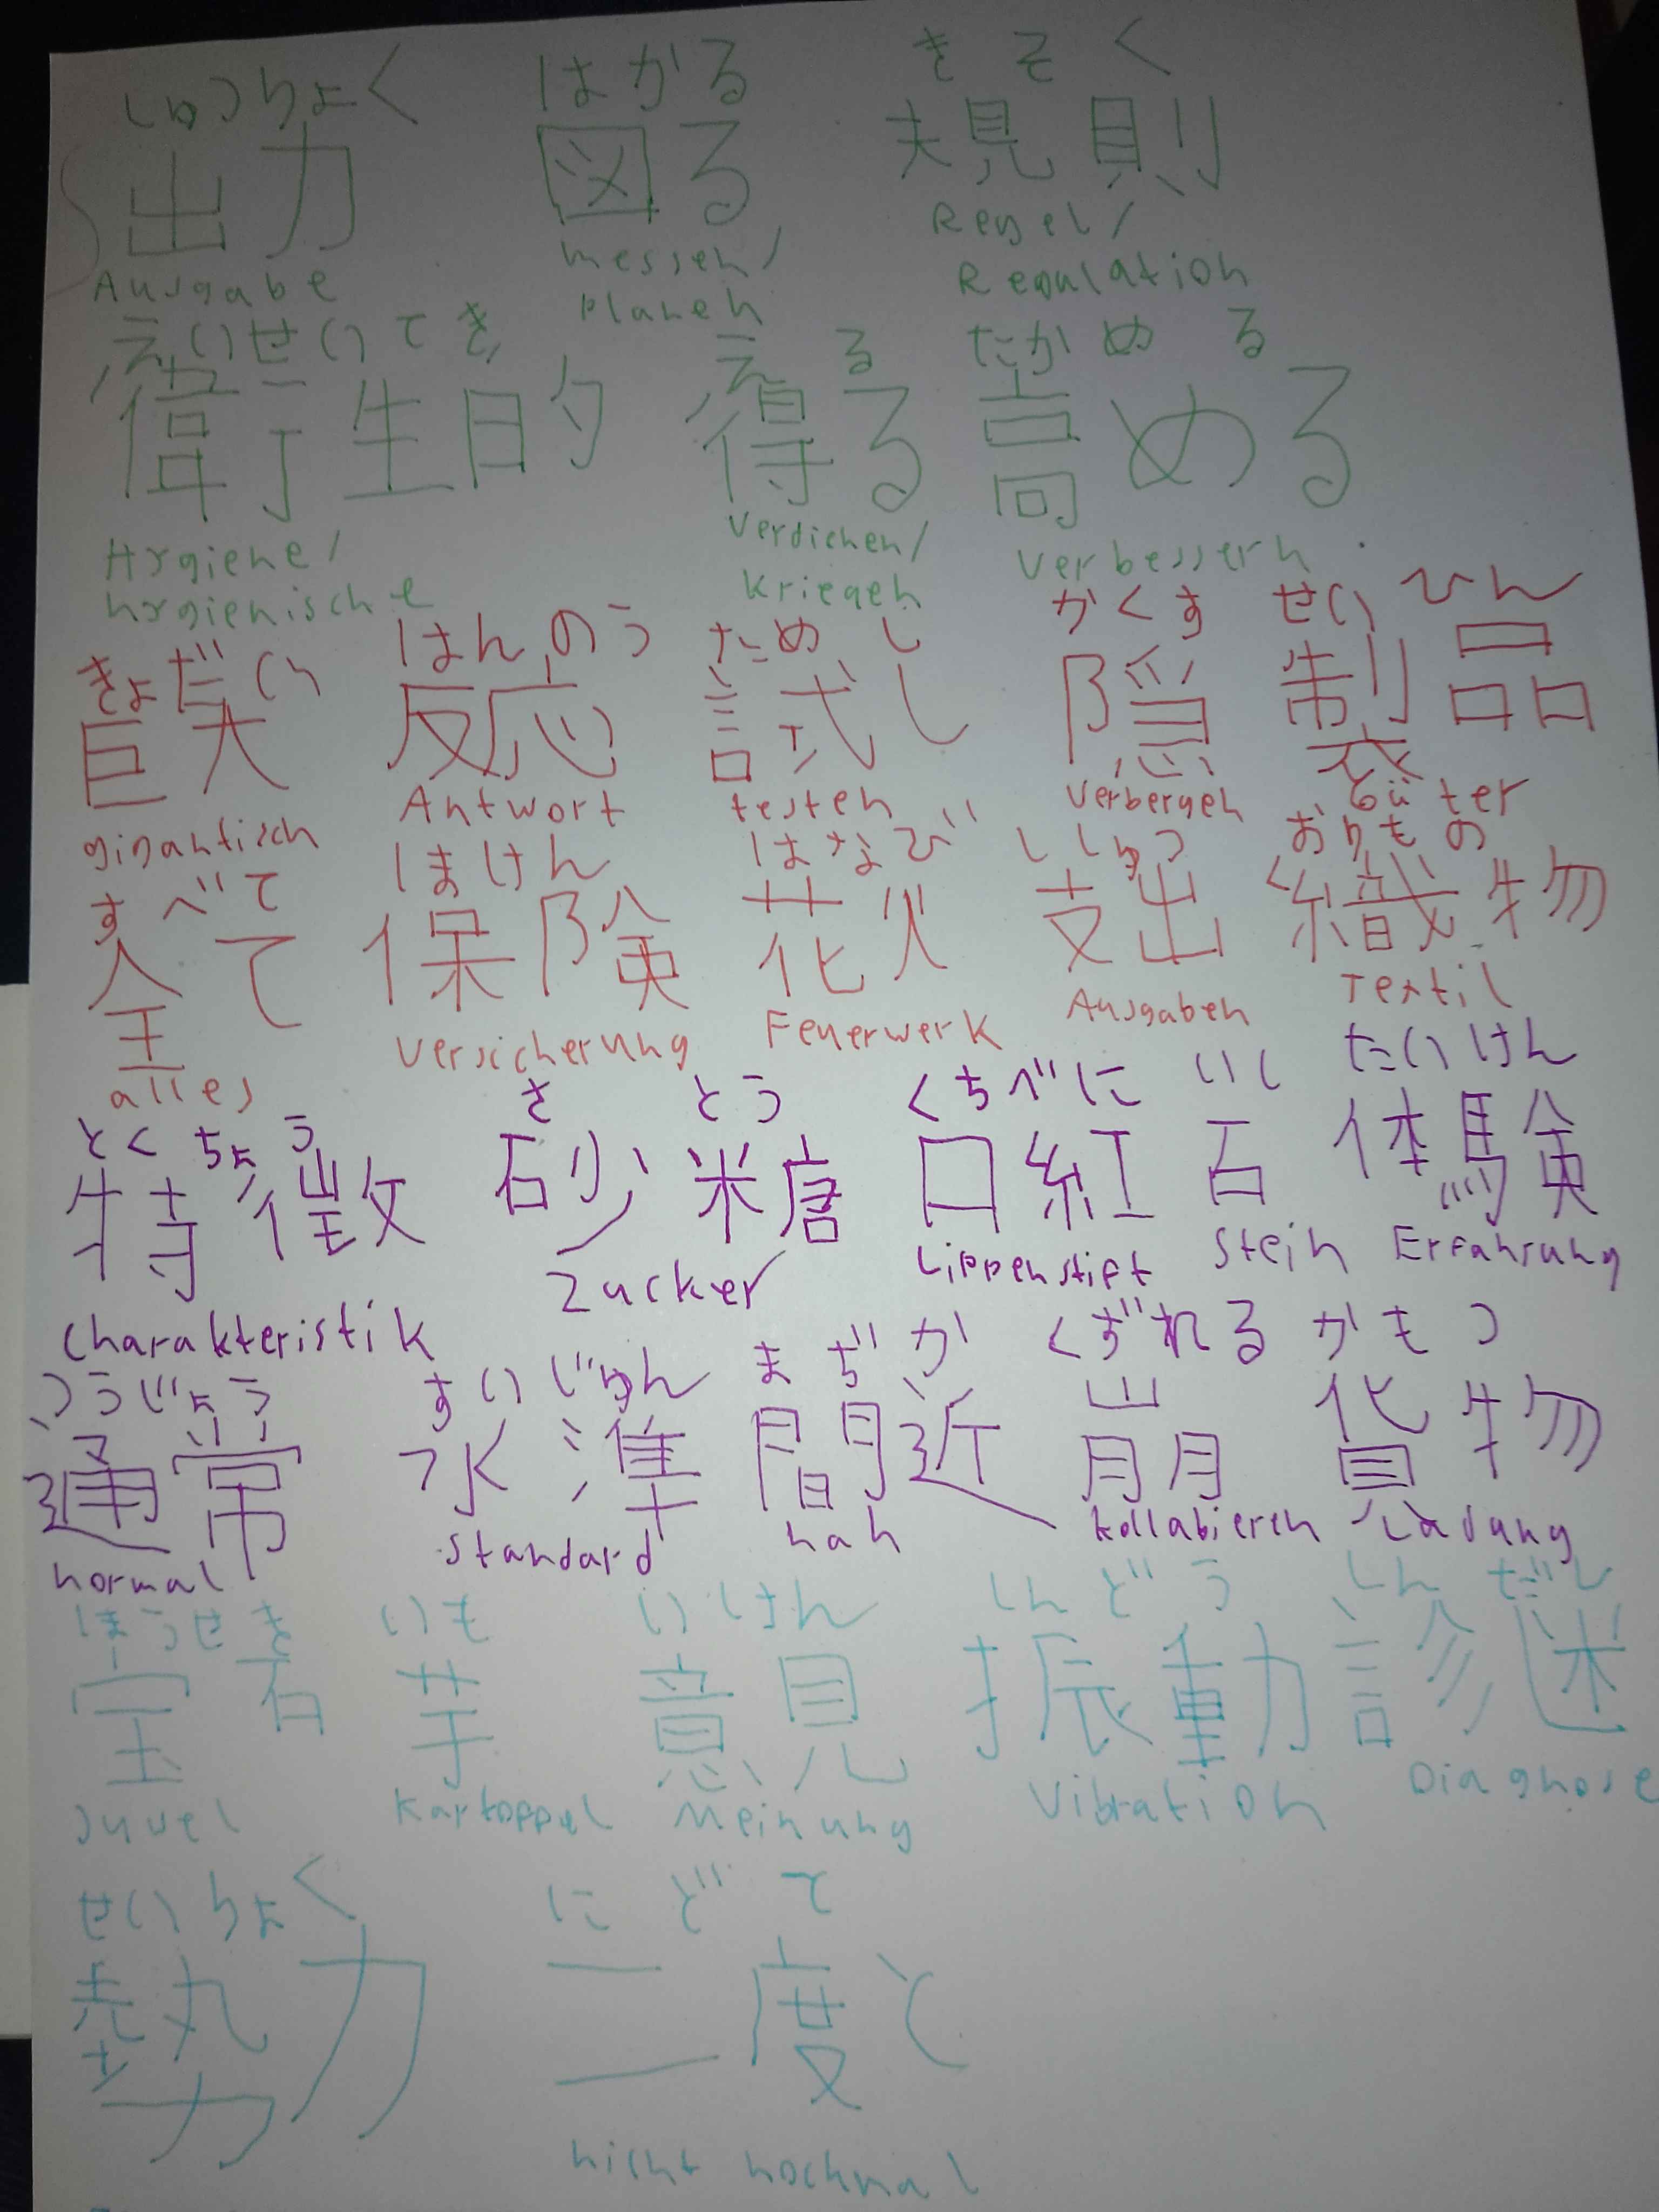 しゅつりょく はかる きそく
出力 図る 規則
Ausgabe messen/ Regel/
planen Regulation
えいせいてき える たかめる
衛生的 得る 高める
Hygiene/ Verdienen/ verbessern
hygienische kriegen
きょだい はんのう ためし かくす せいひん
巨大 反応 試し 隠 製品
gigantisch Antwort testen verbergen Güter
すべて ほけん はなび ししゅつ おりもの
全て 保険 花火 支出 織物
alles Versicherung Feuerwerk Ausgaben Textil
とくちょう さとう くちべに いし たいけん
特徴 砂糖 口紅 石 体験
Charakteristik Zucker Lippenstift Stein Erfahrung
つうじょう すいじゅん まぢか くずれる かもつ
通常 水準 間近 崩 貨物
normal Standard nah kollabieren Ladung
ほうせき いも いけん しんどう しんだし
宝石 芋 意見 振動 診
Juvel Kartoppel Meinung Vibration Diagnose
せいりょく にどて
勢力 二度と
nicht nochmal